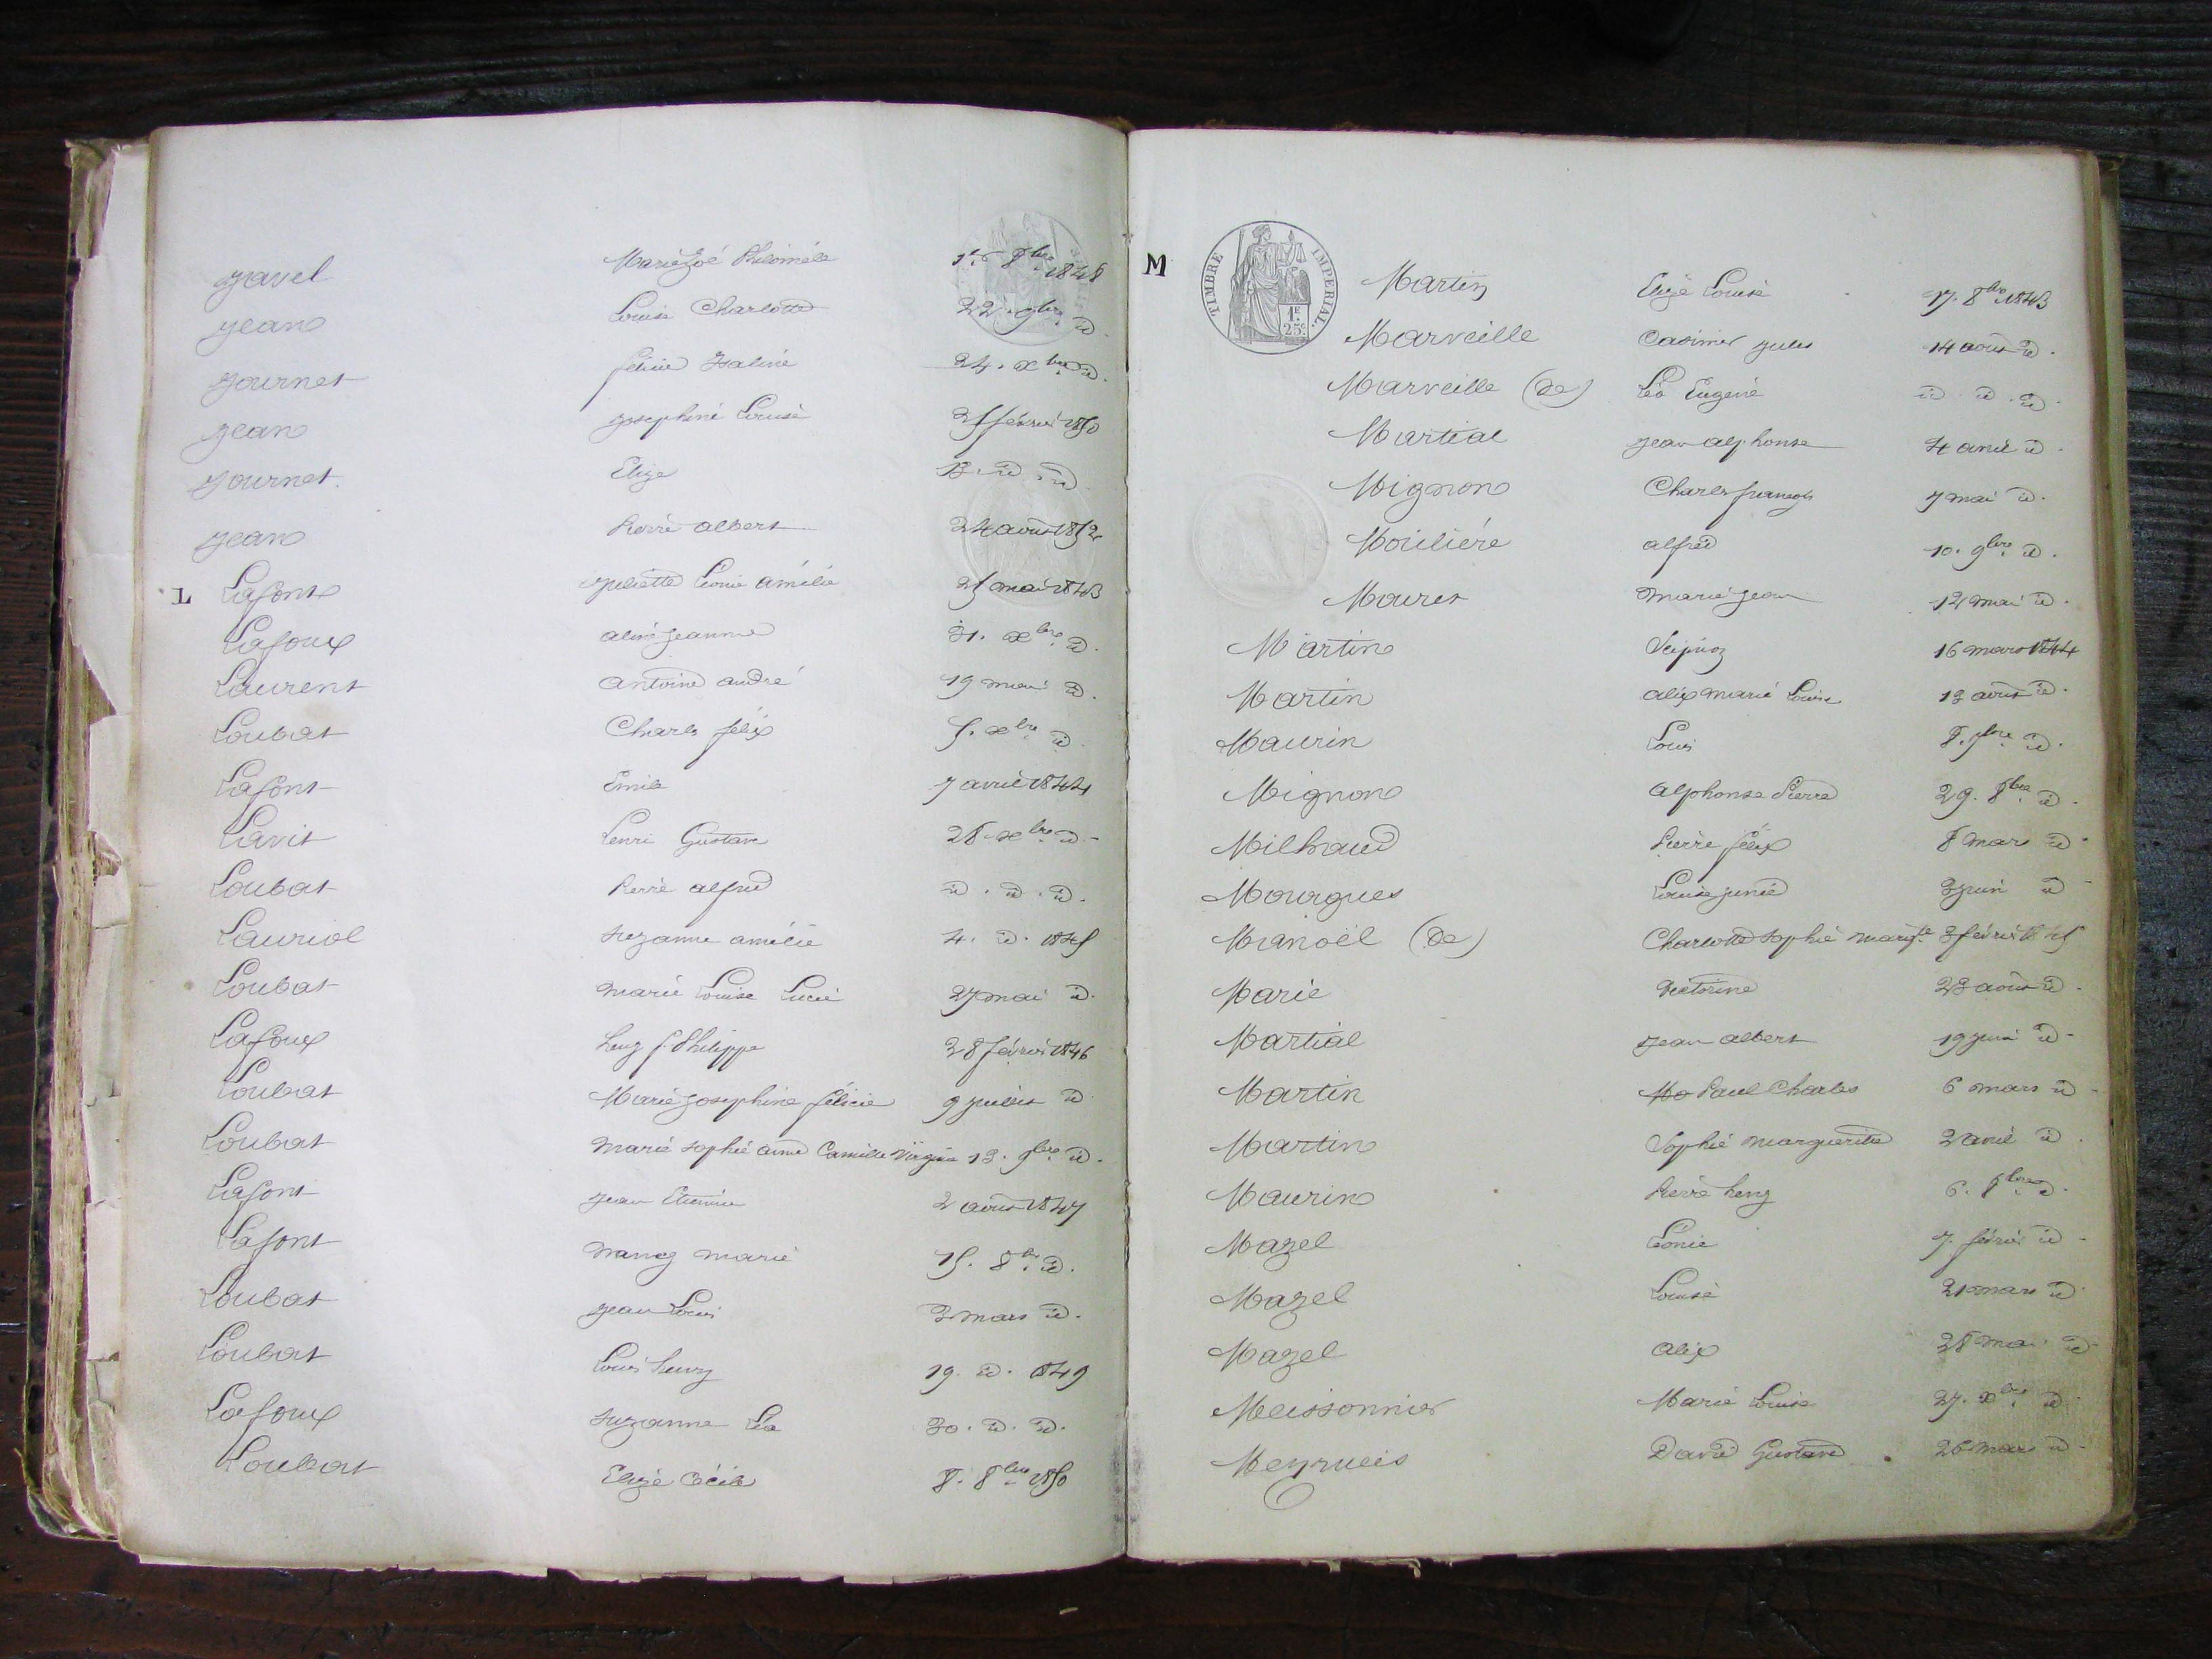 Javel Marie Zoé Philomèle 1er 8bre 1848
Jean Louise Charlotte 22. 9bre id.
Journet félicie Isaline 24. xbre id.
Jean Josephine Louise 25 février 1850
Journet. Elize 13. id. id
Jean Pierre albert 24 août 1852
L Lafont Juliette Léonie amélie 25 mai 1843
Lafoux aline Jeanne 31. xbre id.
Laurent antoine andré 19 mai id.
Loubat Charles félix 5. xbre id.
Lafont Emile 7 avril 1844
Lavit henri Gustave 28 xbre id
Loubat Pierre alfred id. id. id.
Lauriol Suzanne amélie 4. id. 1845
Loubat Marie Louise Lucie 27 mai id.
Lafoux heny f. Philippe 28 février 1846
Loubat Marie Josephine félicie 9 juillet id
Loubat Marie Sophie anne Camille Virginie 13. 9bre id.
Lafont Jean Etienne 2 août 1847
Lafont Nancy Marie 15. 8bre id.
Loubat Jean Louis 3 mars id.
Loubat Louis heny 19. id. 1849
Lafoux Suzanne Léa 30. id. id.
Loubat Elizé Cécile 8. 8bre 1850
M
TIMBRE IMPERIAL.
1F.
25c.
Martin Elizé Louise 17. 8bre 1843
Marveille Casimir Jules 14 août id.
Marveille (de) Léo Eugène id id. id.
Martial Jean alphonse 4 avril id.
Mignon Charles françois 7 mai id.
Moulière alfred 10. 9bre id.
Mouret Marie Jean 12 mai id.
Martin Scipion 16 mars 1844
Martin alix Marie Louise 13 août id.
Maurin Louis 8. 9bre id.
Mignon Alphonse Pierre 29. 8bre id.
Milhaud Pierre félix 8 mars id
Mourgues Louise Junie 3 juin id
Manoël (de) Charlotte Sophie Margte 3 février 1845
Marie Victorine 23 août id.
Martial Jean albert 19 juin id
Martin Paul Charles 6 mars id
Martin Sophie Marguerite 2 avril id.
Maurin Pierre heny 6. 8bre id.
Mazel Léonie 7. février id
Mazel Louise 21 mars id
Mazel Alix 28 mai id
Meissonnier Marie Louise 27. xbre id
Meyrueis David Gustave 26 mars id